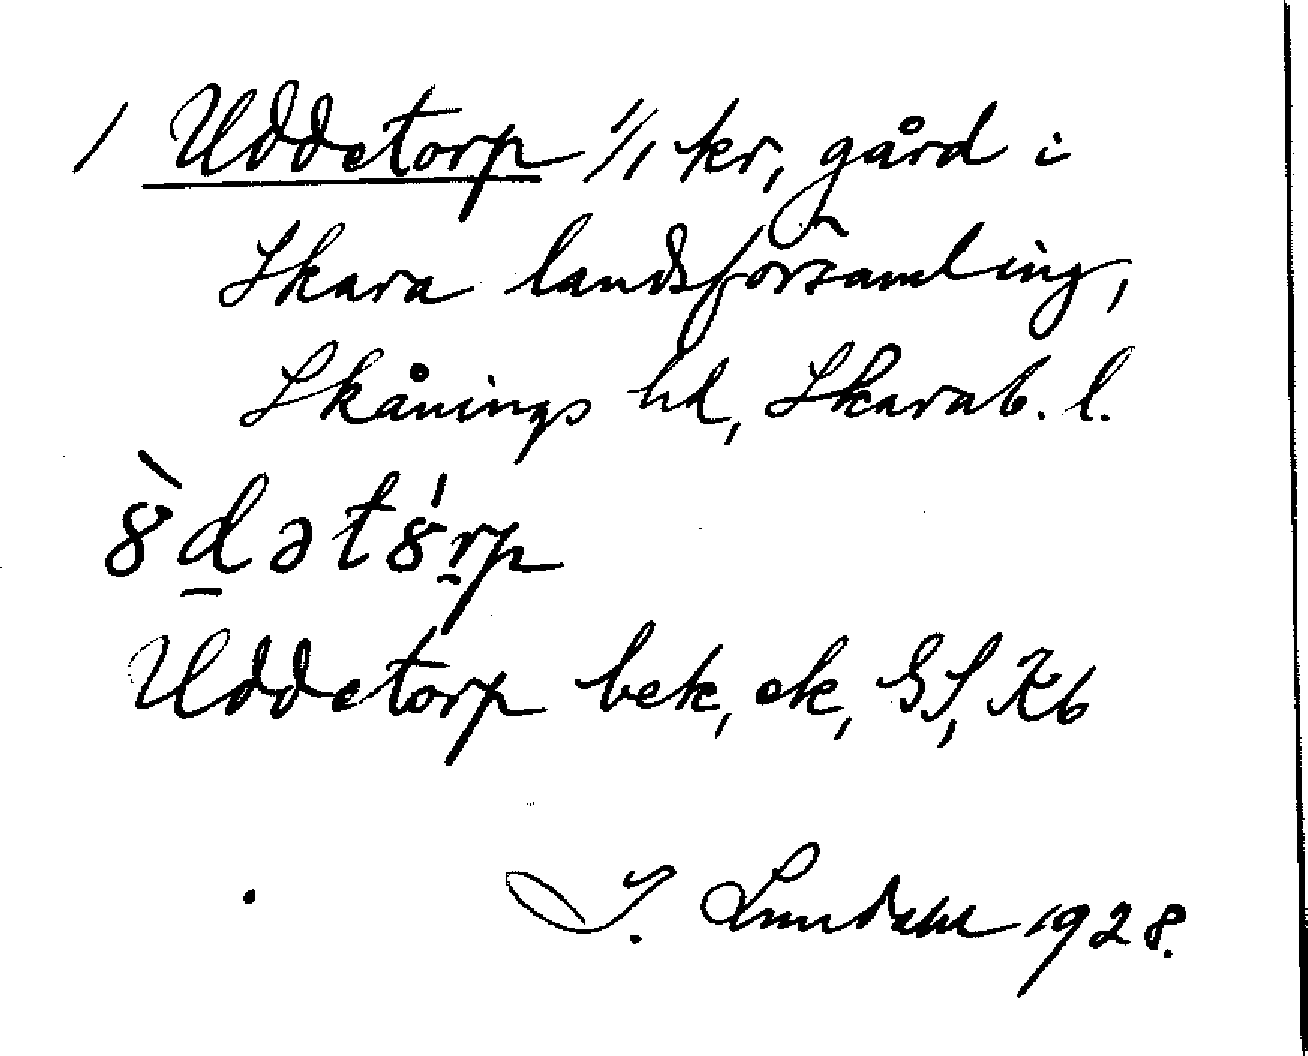 / Uddetorp 1/1 kr, gård i
Skara landsförsamling,
Skånings hd, Skarab. l.
8̀d̲ət8́rp
Uddetorp bek, ek, GS, Kb
I. Lundahl 1928.